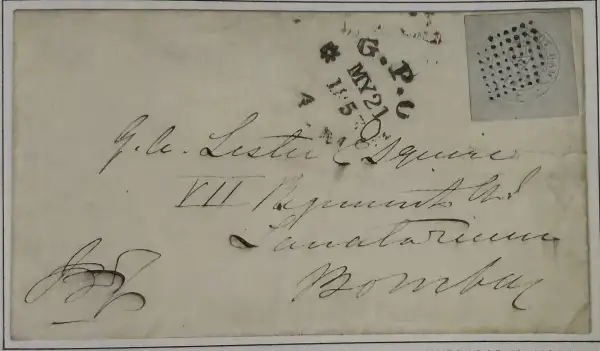 G.P.O
MY 21
185
G. A. Lester Esquire
VII Regiment N.I
Sanatorium
Bombay